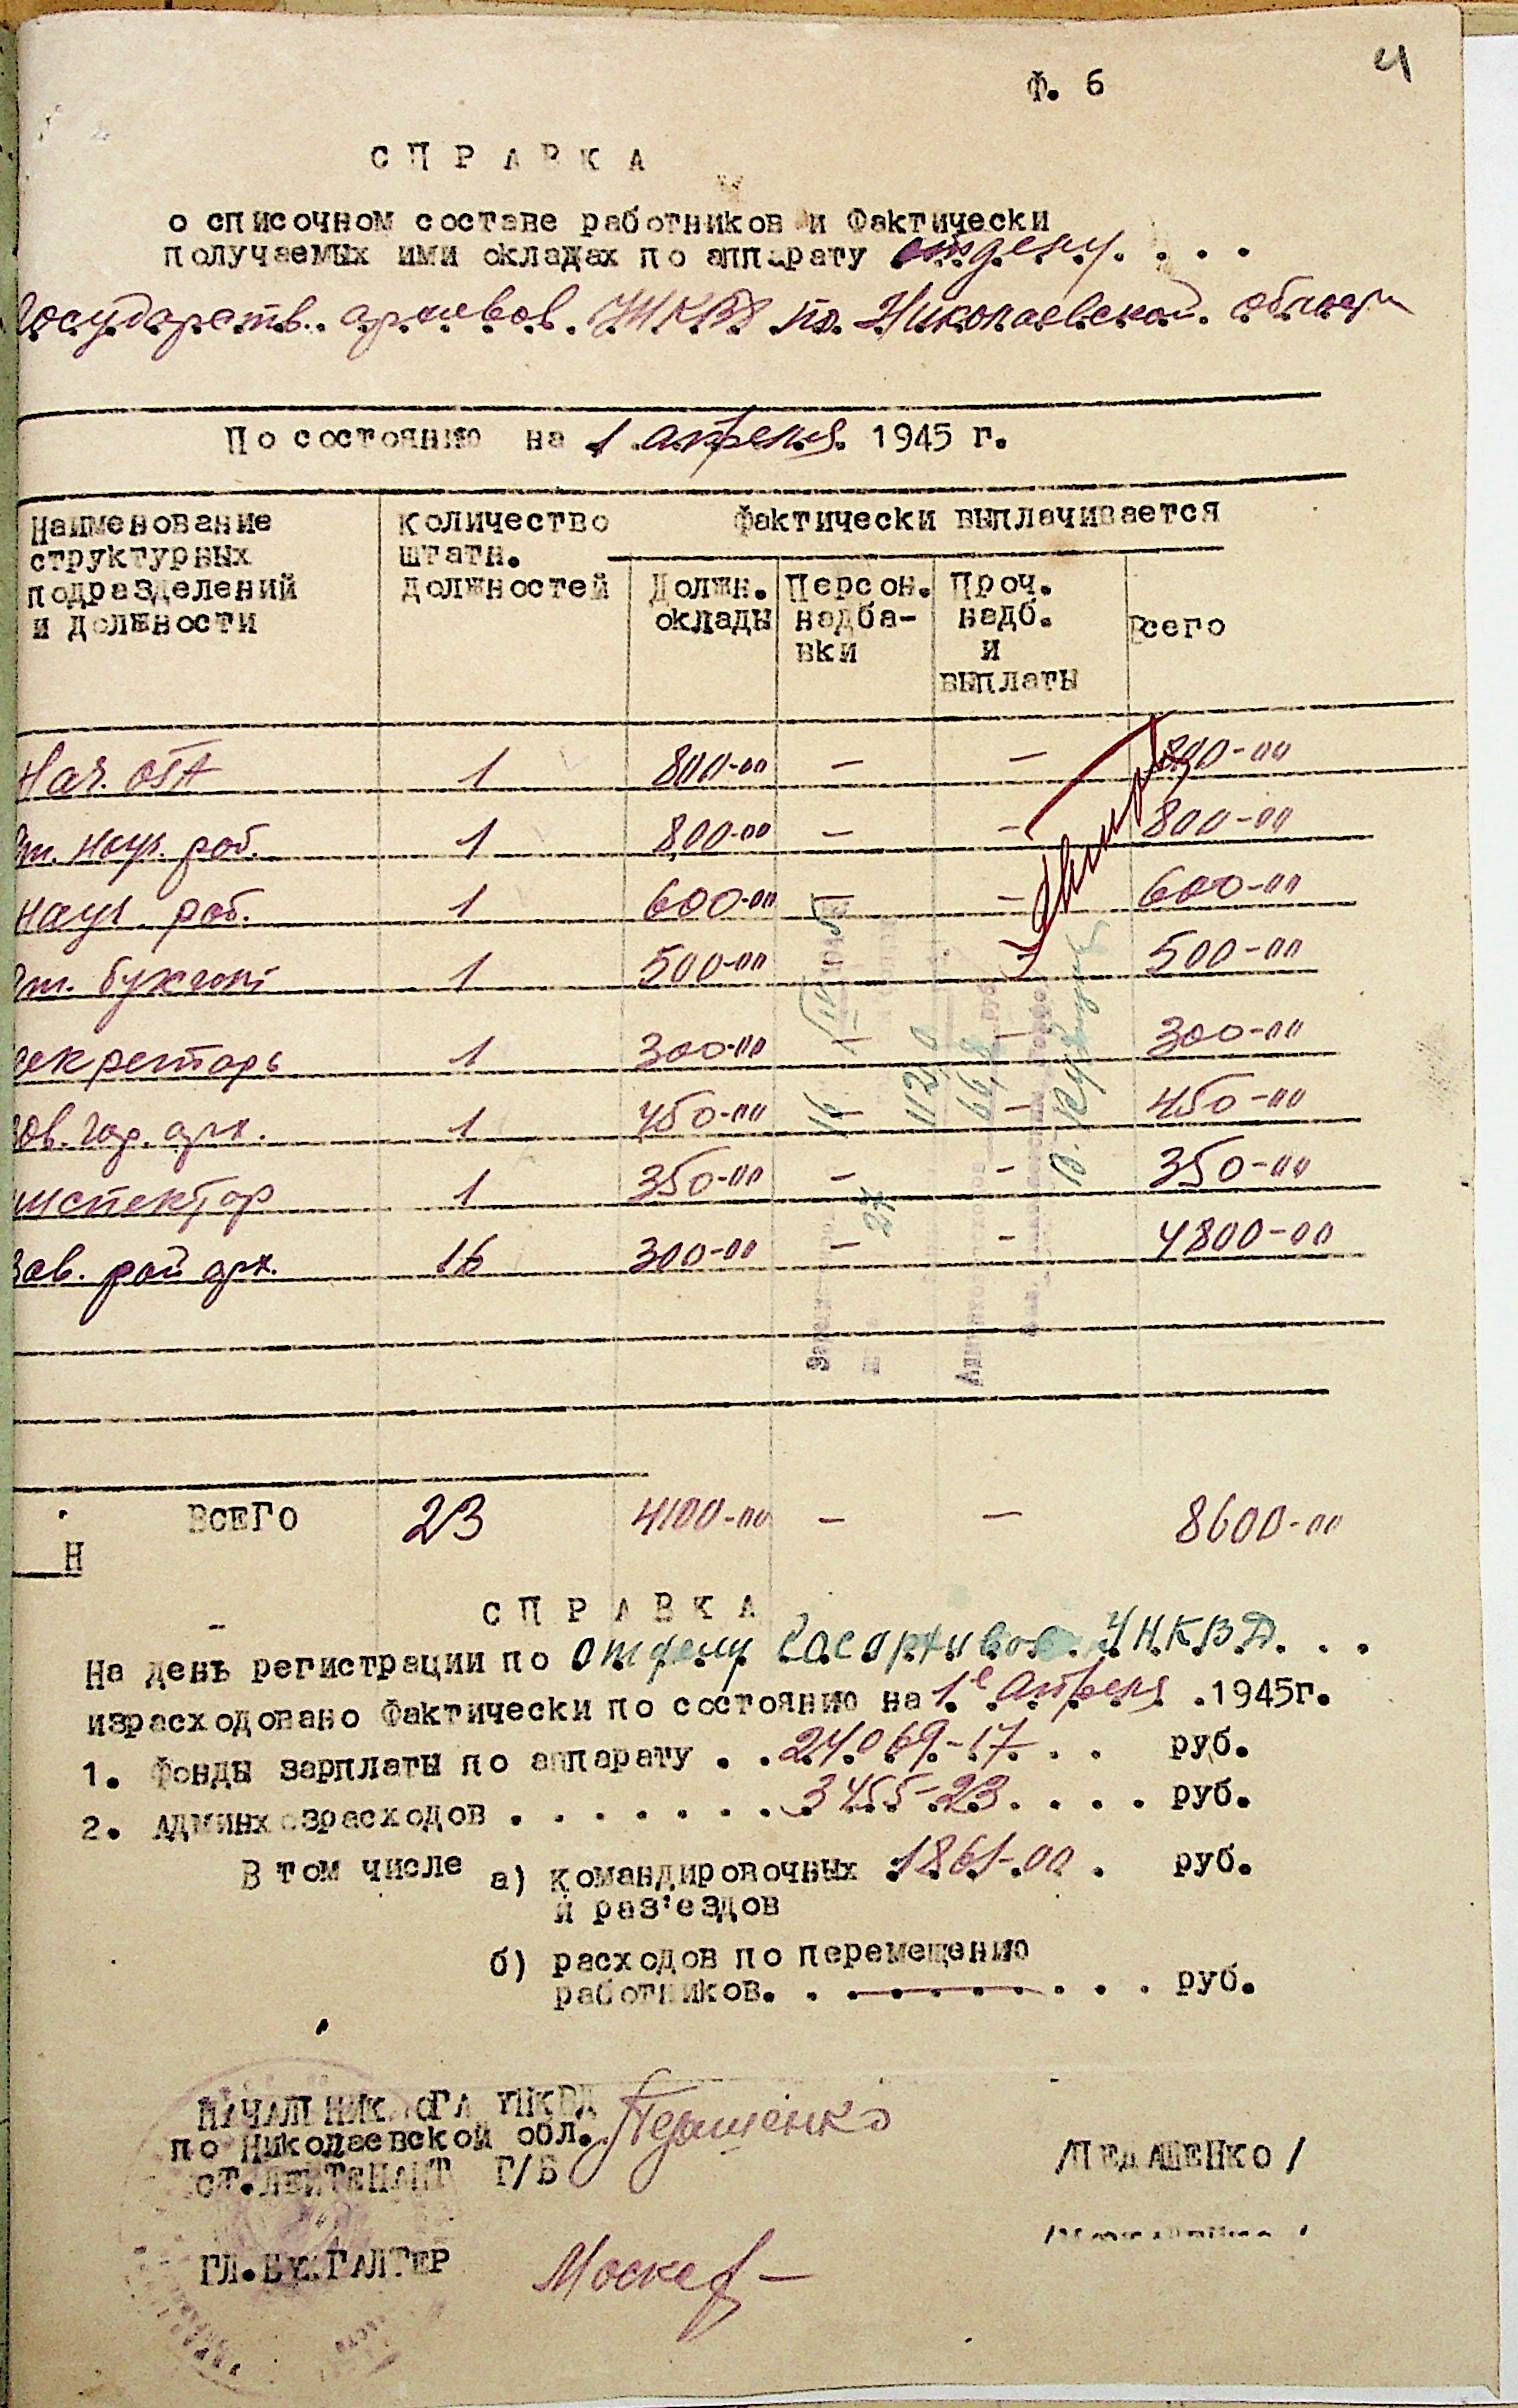 4
Ф. 6
СПРАВКА
о списочном составе работников и фактически
получаемых ими окладах по аппарату отделу . . .
Государств. архивов УНКВД по Николаевской области
По состоянию на 1 апреля 1945 г.
Наименование структурных подразделений и должности
Количество штатн. должностей
Фактически выплачивается
Должн. оклады
Персон. надба-вки
Проч. надб. и выплаты
Всего
Нач. ОГА 1 800-00 — — 800-00
Ст. науч. раб. 1 800-00 — — 800-00
Науч. раб. 1 600-00 — — 600-00
Ст. бухгалт 1 500-00 — 500-00
Секретарь 1 300-00 — — 300-00
Зав. гор. арх. 1 450-00 — — 450-00
Инспектор 1 350-00 — — 350-00
Зав. рай арх. 16 300-00 — — 4800-00
ВСЕГО 23 4100-00 — — 8600-00
Н
СПРАВКА
На день регистрации по Отделу Госархивов УНКВД. . .
израсходовано фактически по состоянию на 1е апреля .1945г.
1. Фонды зарплаты по аппарату . . 24069-17 . . руб.
2. Админхозрасходов . . . . . . . 3455-23 . . . . руб.
В том числе а) командировочных 1861-00 . руб.
и раз'ездов
б) расходов по перемещению
работников. . . . . . . . . . руб.
НАЧАЛЬНИК ОГА УНКВД
по Николаевской обл.
СТ.ЛЕЙТЕНАНТ Г/Б
/ПЕДАШЕНКО/
ГЛ.БУХГАЛТЕР